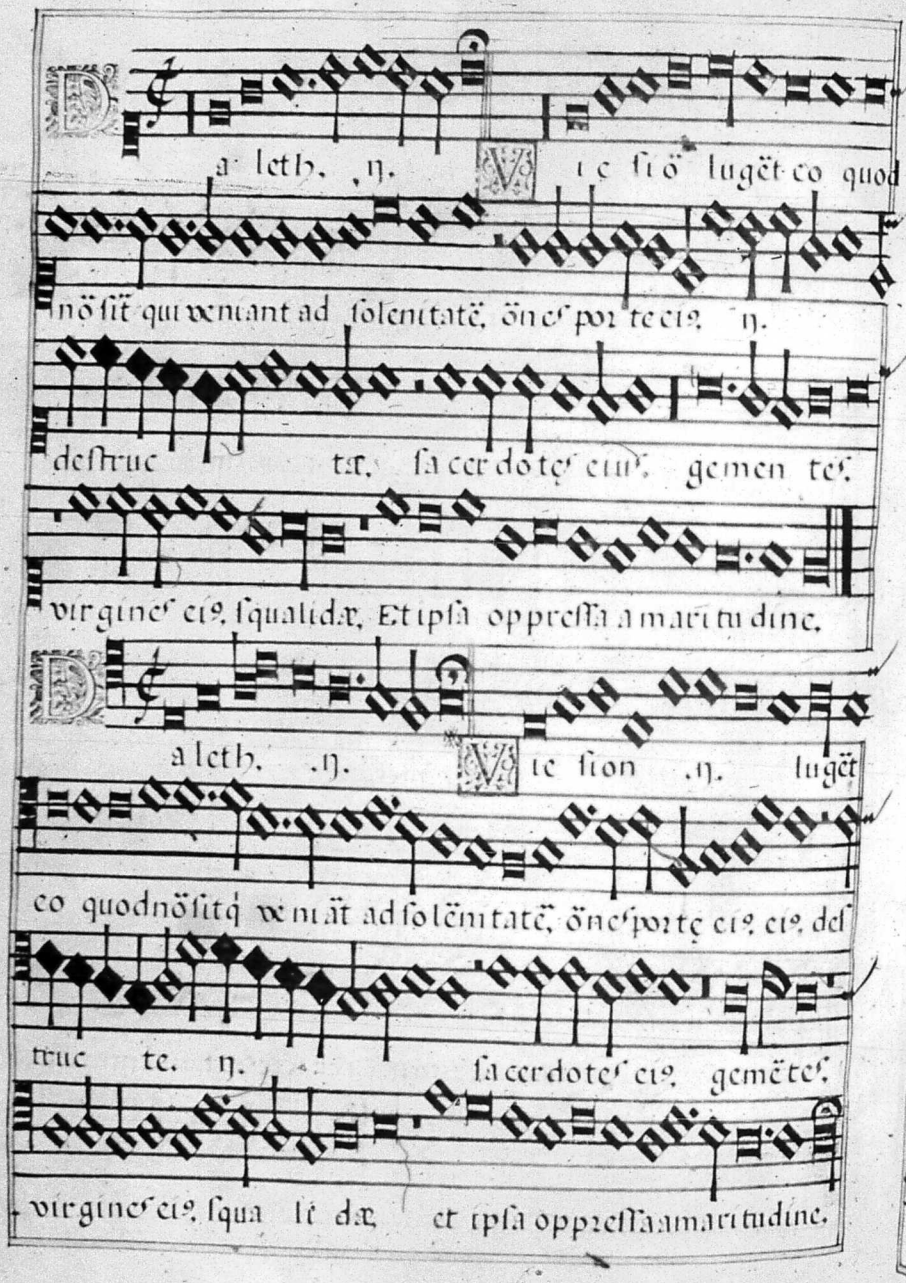 Daleth. ij. Vie siõ lugẽt eo quod
nõ sit qui veniant ad solenitatẽ, õnes porte eiꝰ. ij.
destruc tæ, sacerdotes eius. gementes.
virgines eiꝰ. squalidæ, Et ipsa oppressa amaritudine.
Daleth. ij. Vie sion ij. lugẽt
eo quod nõ sit q̇ veniãt ad solẽnitatẽ, õnes portę eiꝰ. eiꝰ. des
truc te. ij. sacerdotes eiꝰ. gemẽtes.
virgines eiꝰ. squalidæ, et ipsa oppressa amaritudine.